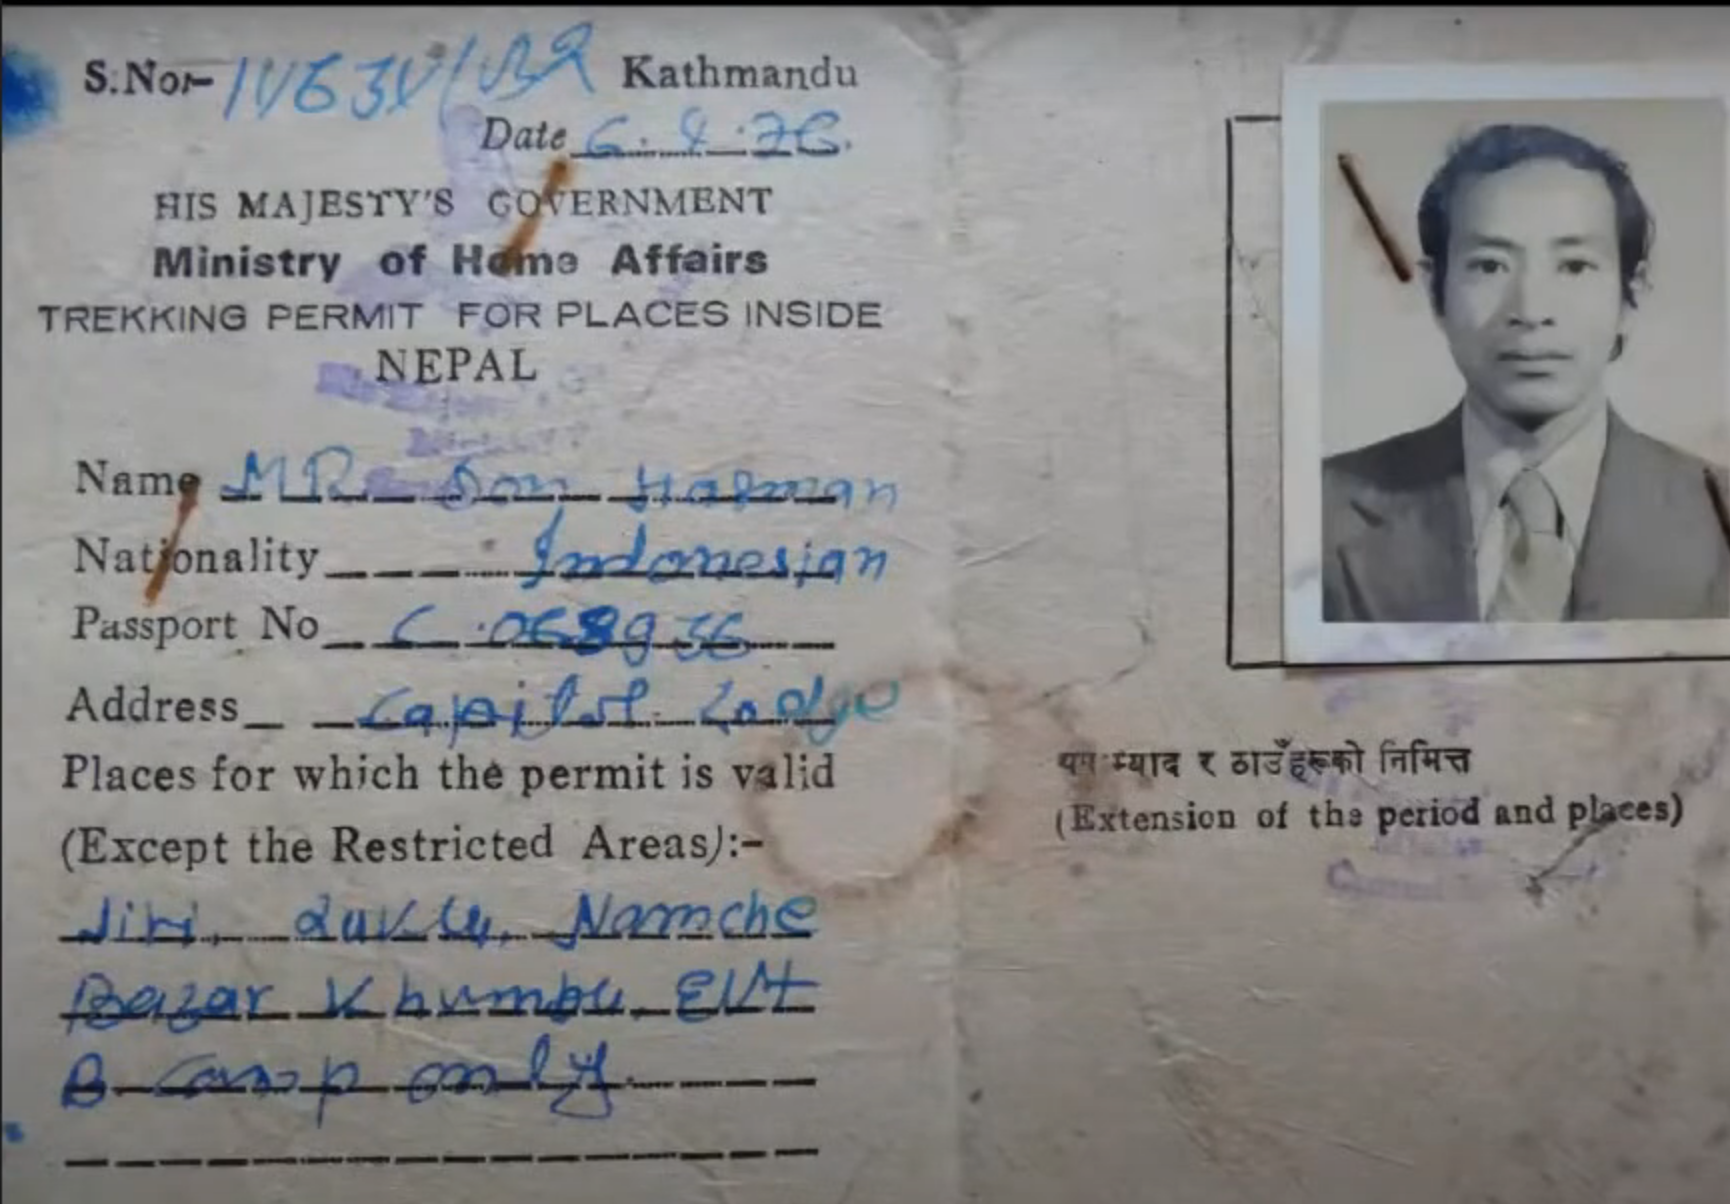 S.No:- Kathmandu
Date 6.
HIS MAJESTY'S GOVERNMENT
Ministry of Home Affairs
TREKKING PERMIT FOR PLACES INSIDE
NEPAL
Name MR. Don Hasman
Nationality Indonesian
Passport No
Address Capitol Lodge
Places for which the permit is valid
(Except the Restricted Areas):-
Jiri, Namche
Bazar Khumbu,
B camp only
म्याद र ठाउँहरूको निमित्त
(Extension of the period and places)